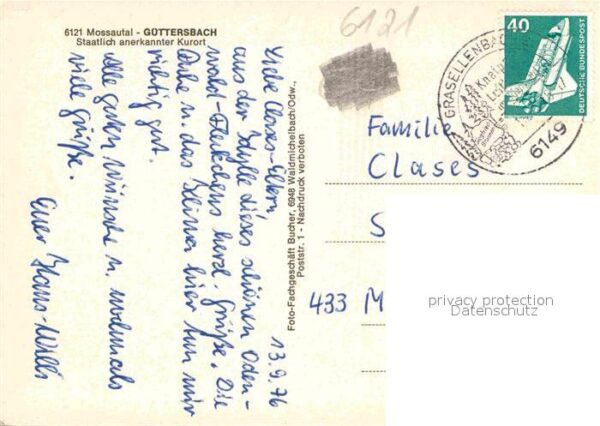 6121 Mossautal - GÜTTERSBACH
Staatlich anerkannter Kurort
6121
13.9.76
Liebe Clases-Eltern,
aus der Idylle dieses schönen Oden-
wald-Fleckchens herzl. Grüße. Die
Ruhe u. das Klima hier tun mir
richtig gut.
Alle guten Wünsche u. nochmals
viele Grüße.
Euer Hans-Willi
Foto-Fachgeschäft Bucher, 6948 Waldmichelbach/Odw.,
Poststr. 1 - Nachdruck verboten
Familie
Clases
S
433 M
40
DEUTSCHE BUNDESPOST
GRASELLENBACH
6149
privacy protection
Datenschutz